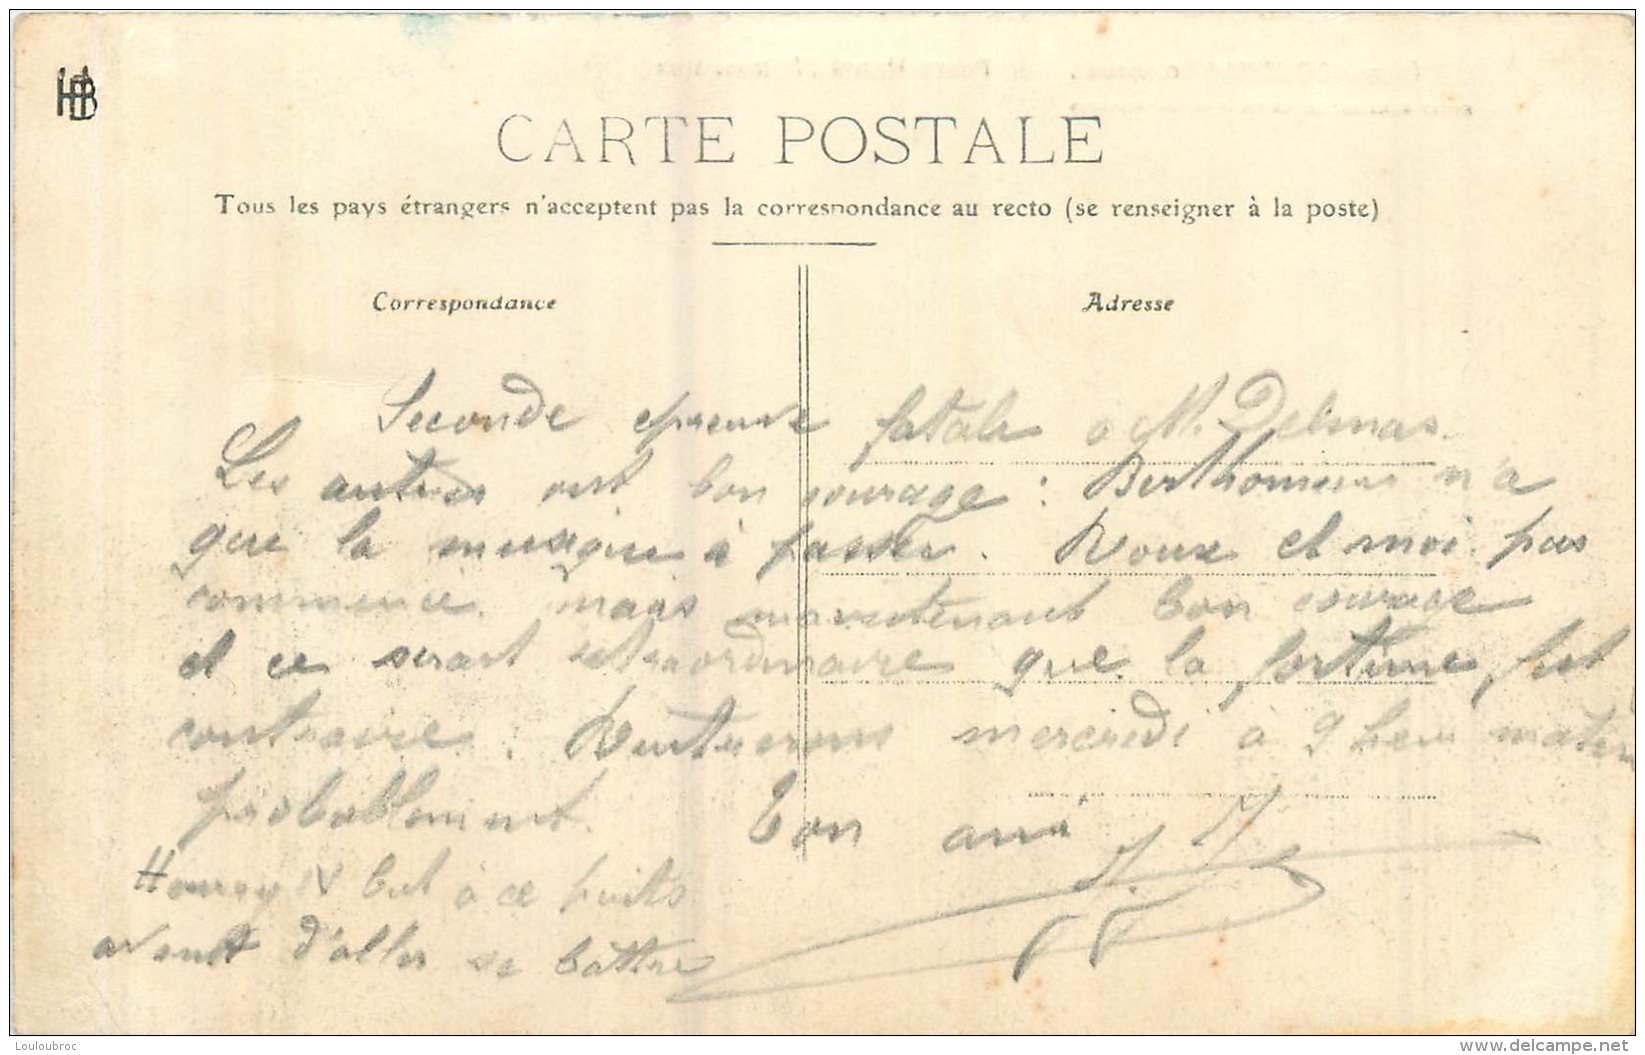 HB
CARTE POSTALE
Tous les pays étrangers n'acceptent pas la correspondance au recto (se renseigner à la poste)
Correspondance
Adresse
Seconde épreuve fatale a M. Delmas.
Les autres ont bon courage : Berthomieu n'a
que la musique à passer. Roux et moi pas
commence mais maintenant bon courage
et ce serait extraordinaire que la fortune fut
contraire. Rentrerons mercredi à 9 heur matin
probablement. Ton ami
Henry IV but à ce puits
avant d'aller se battre
Louloubroc
www.delcampe.net